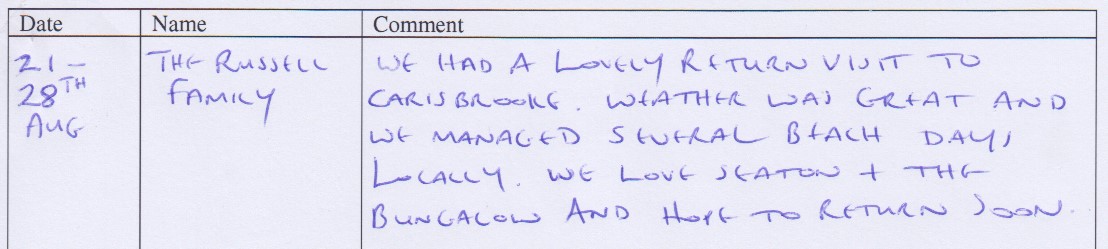 Date Name Comment
21 - THE RUSSELL WE HAD A LOVELY RETURN VISIT TO
28TH FAMILY CARISBROOKE. WEATHER WAS GREAT AND
AUG WE MANAGED SEVERAL BEACH DAYS
LOCALLY. WE LOVE SEATON + THE
BUNGALOW AND HOPE TO RETURN SOON.